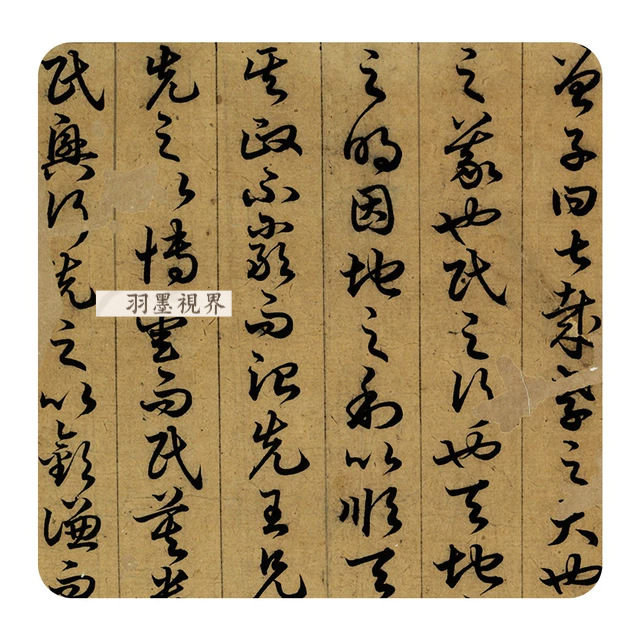 曾子曰甚哉孝之大也
之義也民之行也天地
之明因地之利以順天
其政不嚴而治先王見
先之以博愛而民莫
民興行先之以敬讓而
羽墨視界